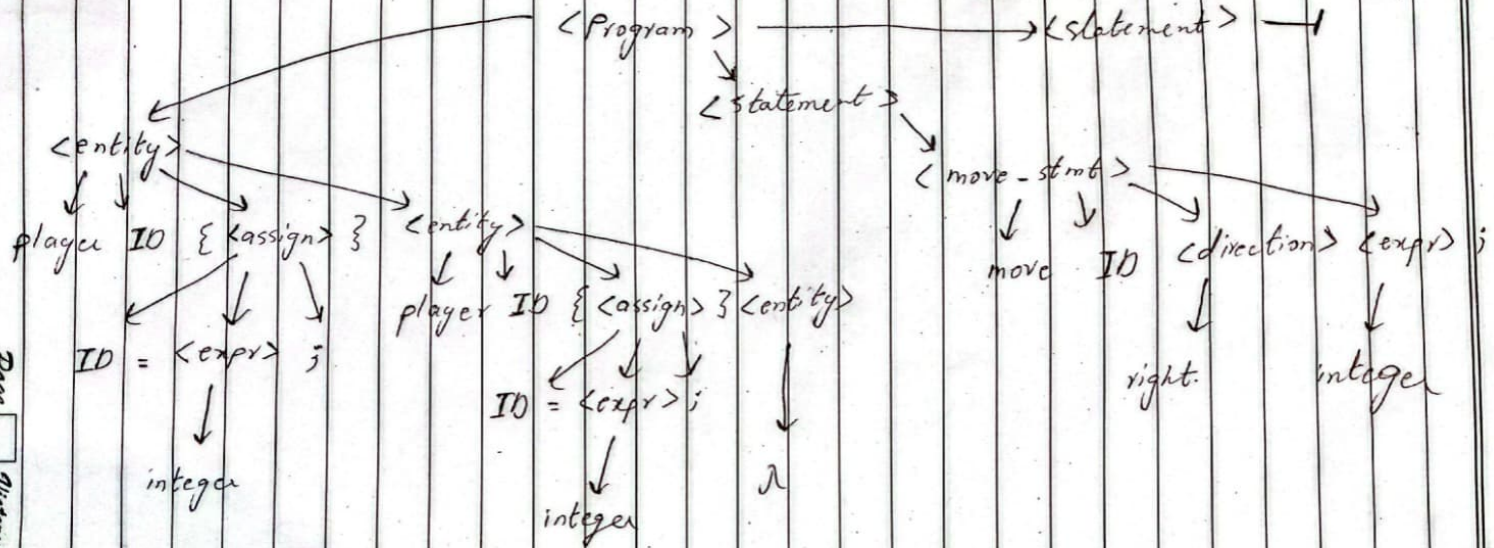 <Program> <statement>
<statement>
<entity> <move-stmt>
player ID { <assign> } <entity> move ID <direction> <expr> ;
player ID { <assign> } <entity>
ID = <expr> ; right. integer
ID = <expr> ;
integer
integer